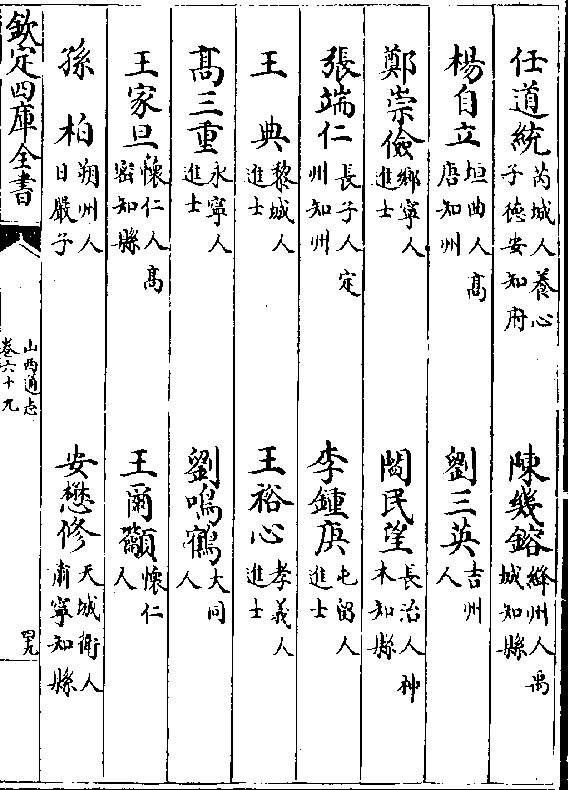 任道統芮城人養心子德安知府
陳幾鎔絳州人禹城知縣
楊自立垣曲人高唐知州
劉三英吉州人
鄭崇儉鄉寧人進士
閻民望長治人神木知縣
張端仁長子人定州知州
李鍾庚屯留人進士
王典黎城人進士
王裕心孝義人進士
高三重永寧人進士
劉鳴鶴大同人
王家旦懷仁人高密知縣
王爾籲懷仁人
孫柏朔州人日嚴子
安懋修天城衛人肅寧知縣
欽定四庫全書
山西通志
卷六十九
罕九